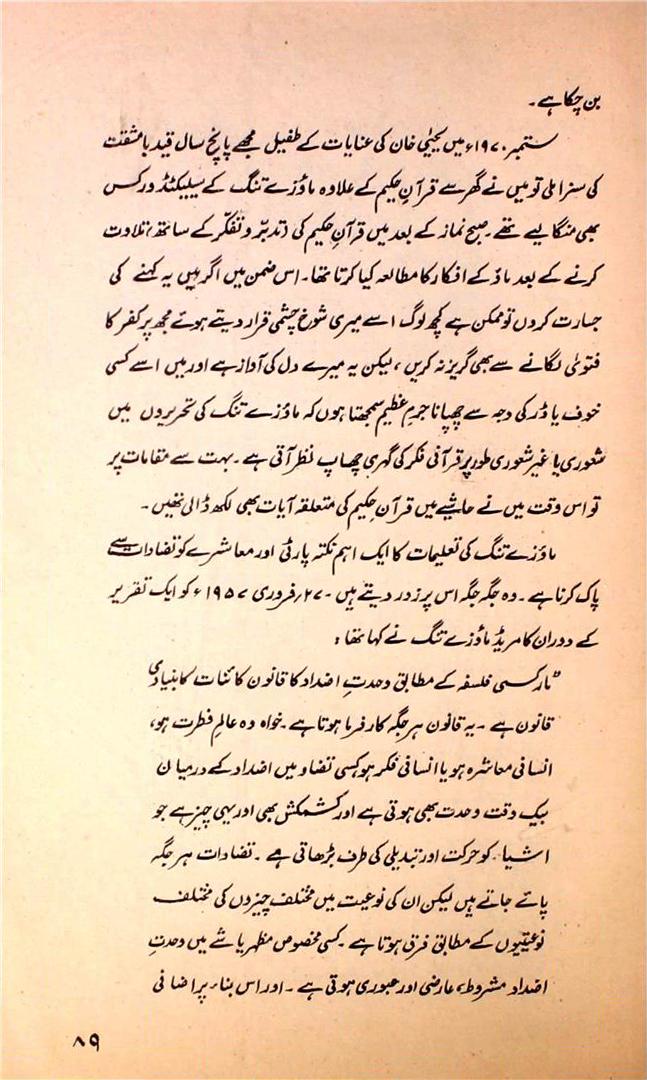 بن چکا ہے۔
ستمبر ۱۹۷۰ء میں یحییٰ خان کی عنایات کے طفیل مجھے پانچ سال قید بامشقت
کی سزا ملی تو میں نے گھر سے قرآنِ حکیم کے علاوہ ماؤزے تنگ کے سیلیکٹڈ ورکس
بھی منگا لیے تھے۔ صبح نماز کے بعد میں قرآنِ حکیم کی (تدبّر و تفکّر کے ساتھ) تلاوت
کرنے کے بعد ماؤ کے افکار کا مطالعہ کیا کرتا تھا۔ اس ضمن میں اگر میں یہ کہنے کی
جسارت کروں تو ممکن ہے کچھ لوگ اسے میری شوخ چشمی قرار دیتے ہوئے مجھ پر کفر کا
فتویٰ لگانے سے بھی گریز نہ کریں، لیکن یہ میرے دل کی آواز ہے اور میں اسے کسی
خوف یا ڈر کی وجہ سے چھپانا جرمِ عظیم سمجھتا ہوں کہ ماؤزے تنگ کی تحریروں میں
شعوری یا غیر شعوری طور پر قرآنی فکر کی گہری چھاپ نظر آتی ہے۔ بہت سے مقامات پر
تو اس وقت میں نے حاشیے میں قرآنِ حکیم کی متعلقہ آیات بھی لکھ ڈالی تھیں۔
ماؤزے تنگ کی تعلیمات کا ایک اہم نکتہ پارٹی اور معاشرے کو تضادات سے
پاک کرنا ہے۔ وہ جگہ جگہ اس پر زور دیتے ہیں۔ ۲۷؍فروری ۱۹۵۷ء کو ایک تقریر
کے دوران کامریڈ ماؤزے تنگ نے کہا تھا:
"مارکسی فلسفہ کے مطابق وحدتِ اضداد کا قانون کائنات کا بنیادی
قانون ہے۔ یہ قانون ہر جگہ کارفرما ہوتا ہے۔ خواہ وہ عالمِ فطرت ہو،
انسانی معاشرہ ہو یا انسانی فکر ہو کسی تضاد میں اضداد کے درمیان
بیک وقت وحدت بھی ہوتی ہے اور کشمکش بھی اور یہی چیز ہے جو
اشیاء کو حرکت اور تبدیلی کی طرف بڑھاتی ہے۔ تضادات ہر جگہ
پائے جاتے ہیں لیکن ان کی نوعیت میں مختلف چیزوں کی مختلف
نوعیتوں کے مطابق فرق ہوتا ہے۔ کسی مخصوص مظہر یا شے میں وحدتِ
اضداد مشروط، عارضی اور عبوری ہوتی ہے۔ اور اس بناء پر اضافی
۸۹